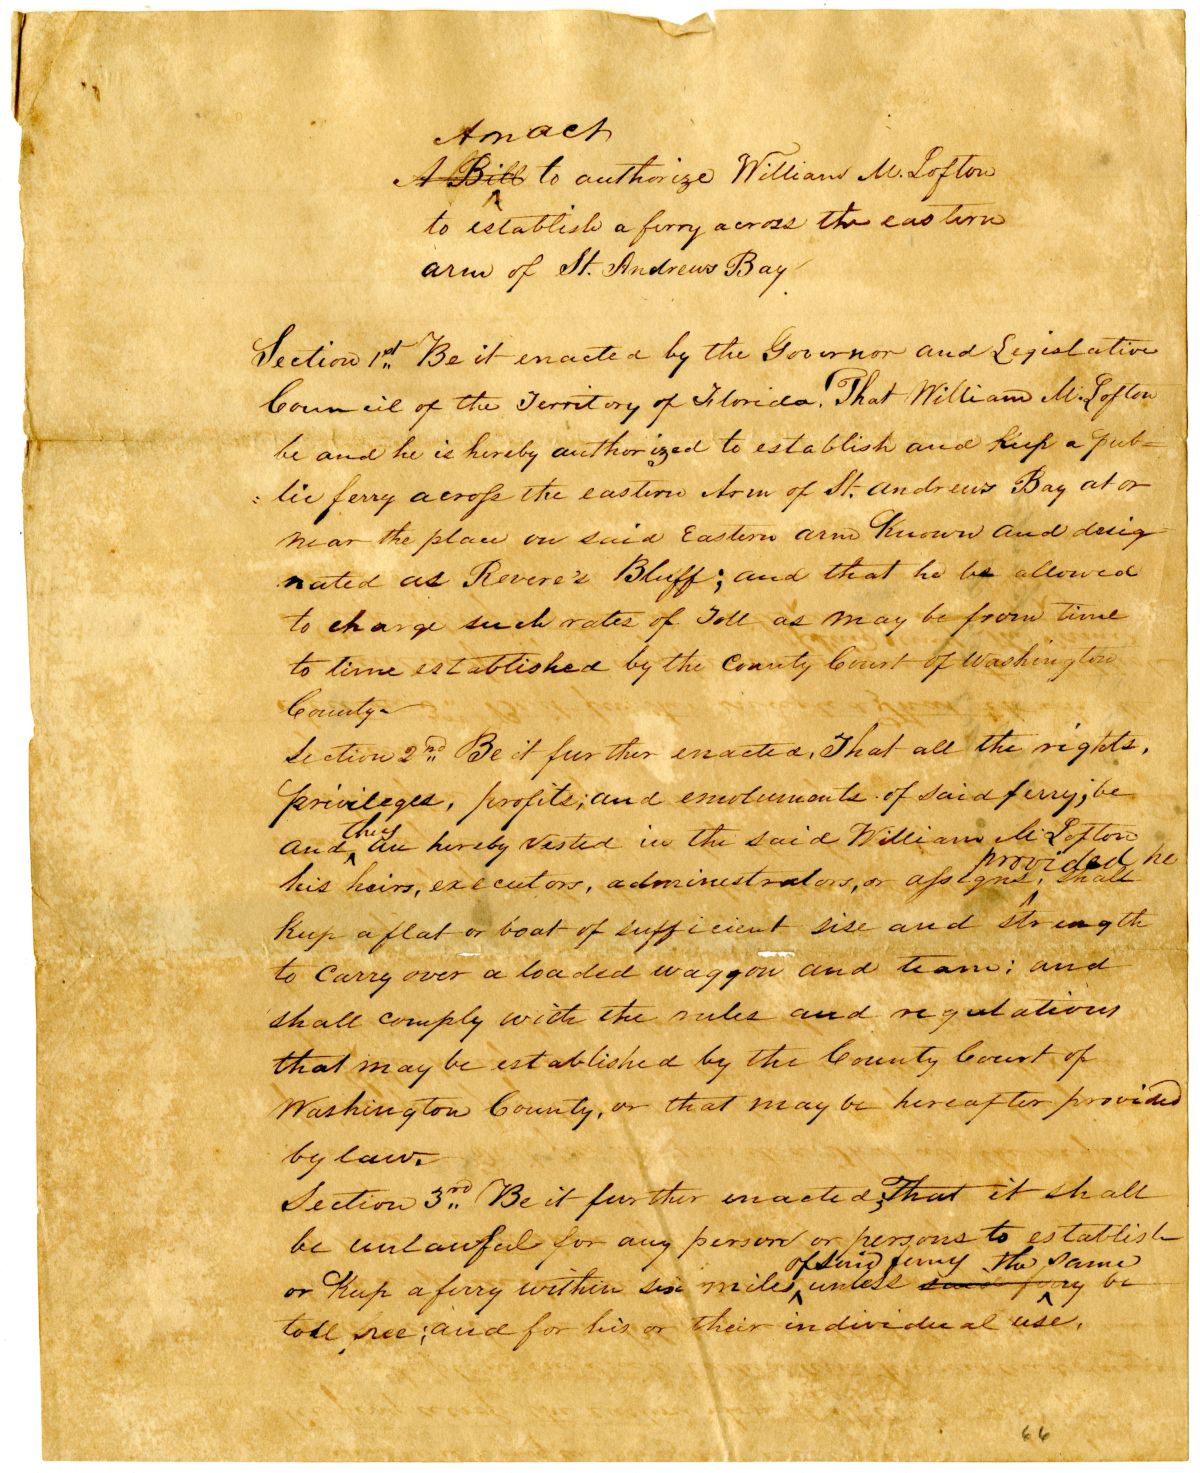 An act
A Bill to authorize William M. Lofton
to establish a ferry across the eastern
arm of St. Andrews Bay
Section 1st Be it enacted by the Governor and Legislative
Council of the Territory of Florida. That William M. Lofton
be and he is hereby authorized to establish and keep a pub-
lic ferry across the eastern Arm of St. Andrews Bay at or
near the place on said Eastern arm known and desig-
nated as Revere's Bluff; and that he be allowed
to charge such rates of Toll as may be from time
to time established by the County Court of Washington
County.
Section 2nd Be it further enacted, That all the rights,
privileges, profits; and emoluments of said ferry; be
they
and are hereby vested in the said William M. Lofton
provided he
his heirs, executors, administrators, or assigns, shall
keep a flat or boat of sufficient sise and strength
to carry over a loaded waggon and team; and
shall comply with the rules and regulations
that may be established by the County Court of
Washington County, or that may be hereafter provided
by law.
Section 3rd Be it further enacted, That it shall
be unlawful for any person or persons to establish
of said ferry the same
or keep a ferry within six miles, unless said ferry be
toll free; and for his or their individual use.
66